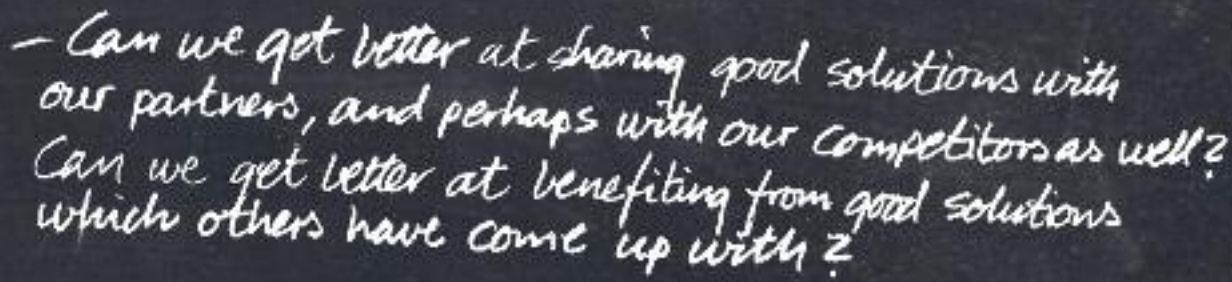 – Can we get better at sharing good solutions with
our partners, and perhaps with our competitors as well?
Can we get better at benefiting from good solutions
which others have come up with?